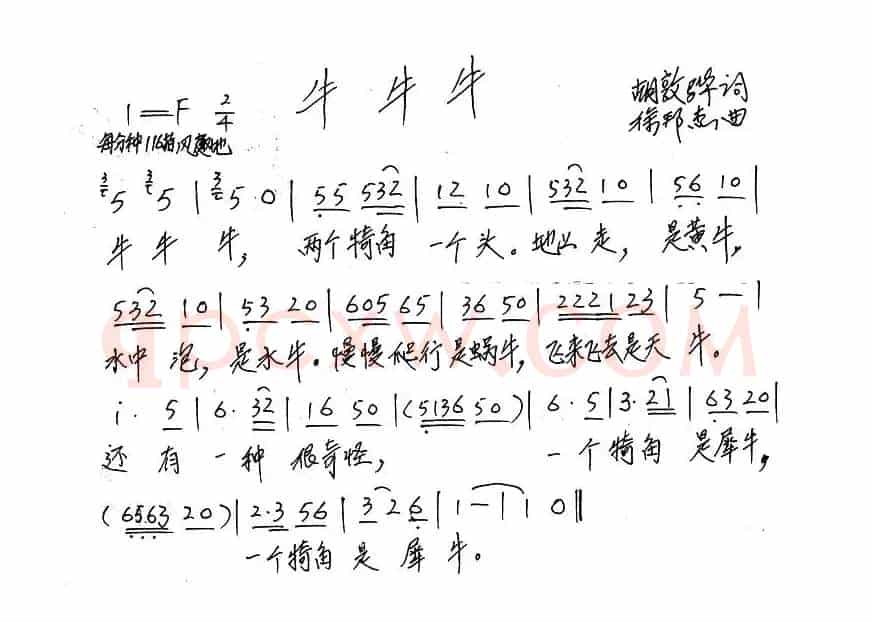 牛 牛 牛
胡敦骅词
1=F 2/4
徐邦杰曲
每分种116拍风趣地
3 5 3 5 | 3 5·0 | 55 532 | 12 10 | 532 10 | 56 10 |
牛 牛 牛, 两个犄角 一个头。地山走, 是黄牛,
532 10 | 53 20 | 605 65 | 36 50 | 222123 | 5 — |
水中 泡, 是水牛。慢慢爬行是蜗牛, 飞来飞去是天 牛。
i· 5 | 6· 32 | 16 50 | (5136 50) | 6· 5 | 3· 21 | 63 20 |
还 有 一 种 很奇怪, 一 个 犄角 是犀牛,
(6563 20) | 2·3 56 | 3 2 6 | 1 — | 1 0 ‖
一个犄角 是 犀 牛。
qpcxw.com